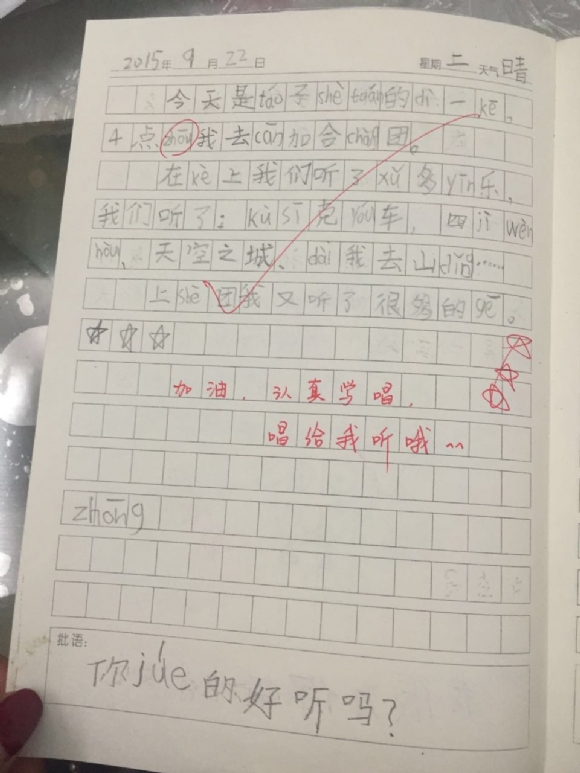 2015年 9月 22日 星期 二 天气 晴
今天是táo子shè tuán的dì一kè。
4点zhōu我去cān加合chàng团。
在kè上我们听了xǔ多yīn乐,
我们听了:kù sī克yóu车,四jì wèn
hòu、天空之城、dài我去山dǐng……
上shè团我又听了很多的gē。
☆☆☆
加油,认真学唱,
唱给我听哦~~
zhōng
批语:
你júe的好听吗?